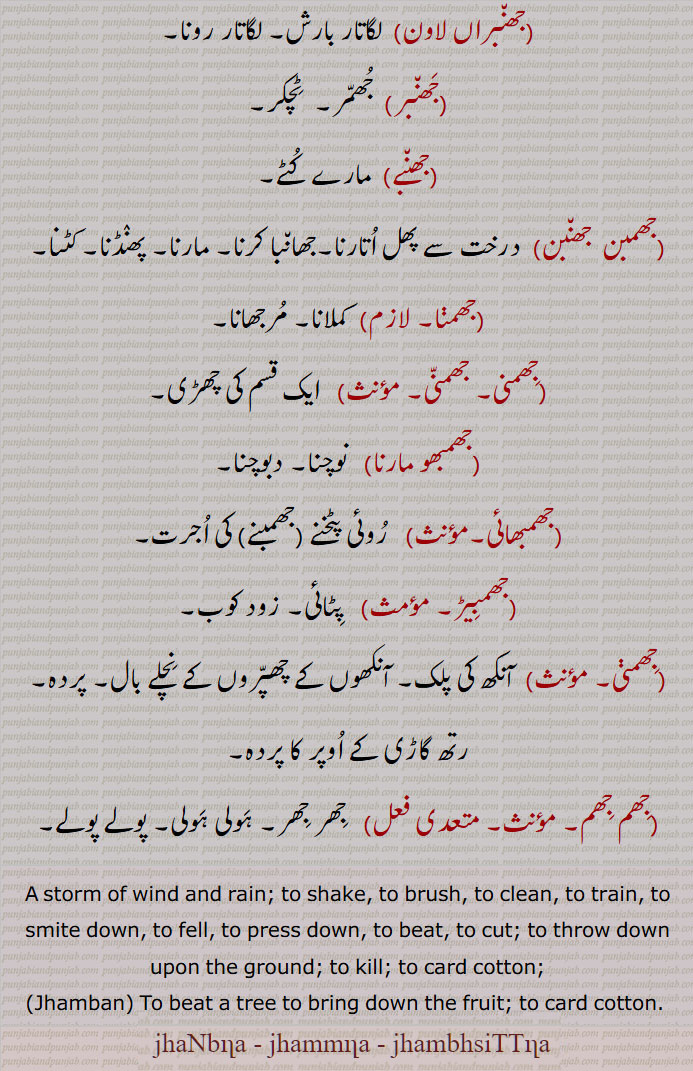 (جھنّبراں لاون) لگاتار بارش۔ لگاتار رونا۔
(جَھنّبر) جُھمّر۔ ٹِچکر۔
(جھنّبے) مارے کُٹے۔
(جھمبن جھنّبن) درخت سے پھل اُتارنا۔ جھانّبا کرنا۔ مارنا۔ پھنڈنا۔ کٹنا۔
(جھمنا۔ لازم) کملانا۔ مُرجھانا۔
(جھمنی۔ جھمنّی۔ مؤنث) ایک قسم کی چھڑی۔
(جھمبھو مارنا) نوچنا۔ دبوچنا۔
(جھمبھائی۔ مؤنث) رُوئی پٹخنے (جھمبنے) کی اُجرت۔
(جھمبِیڑ۔ مؤمث) پِٹائی۔ زود کوب۔
(جِھمنّی۔ مؤنث) آنکھ کی پلک۔ آنکھوں کے چھپّروں کے نِچلے بال۔ پردہ۔
رتھ گاڑی کے اُوپر کا پردہ۔
(جِھم جِھم۔ مؤنث۔ متعدی فعل) جِھر جِھر۔ ہَولی ہَولی۔ پولے پولے۔
A storm of wind and rain; to shake, to brush, to clean, to train, to
smite down, to fell, to press down, to beat, to cut; to throw down
upon the ground; to kill; to card cotton;
(Jhamban) To beat a tree to bring down the fruit; to card cotton.
jhaNbɳa - jhammɳa - jhambhsiTTɳa